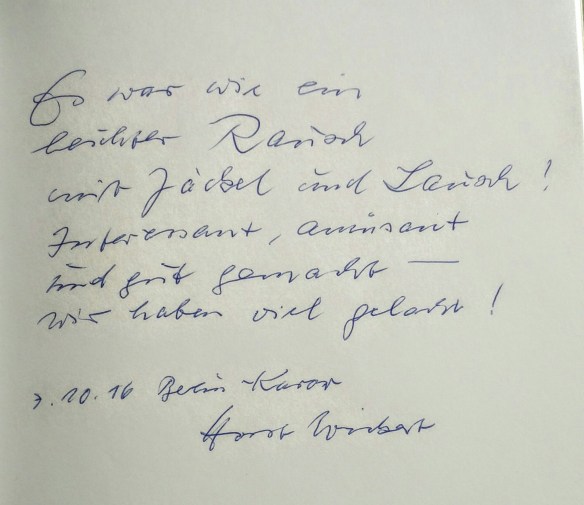 Es war wie ein
leichter Rausch
mit Jäckel und Lausch!
Interessant, amüsant
und gut gemacht —
wir haben viel gelacht!
7.10.16 Berlin-Karow
Horst Wickert